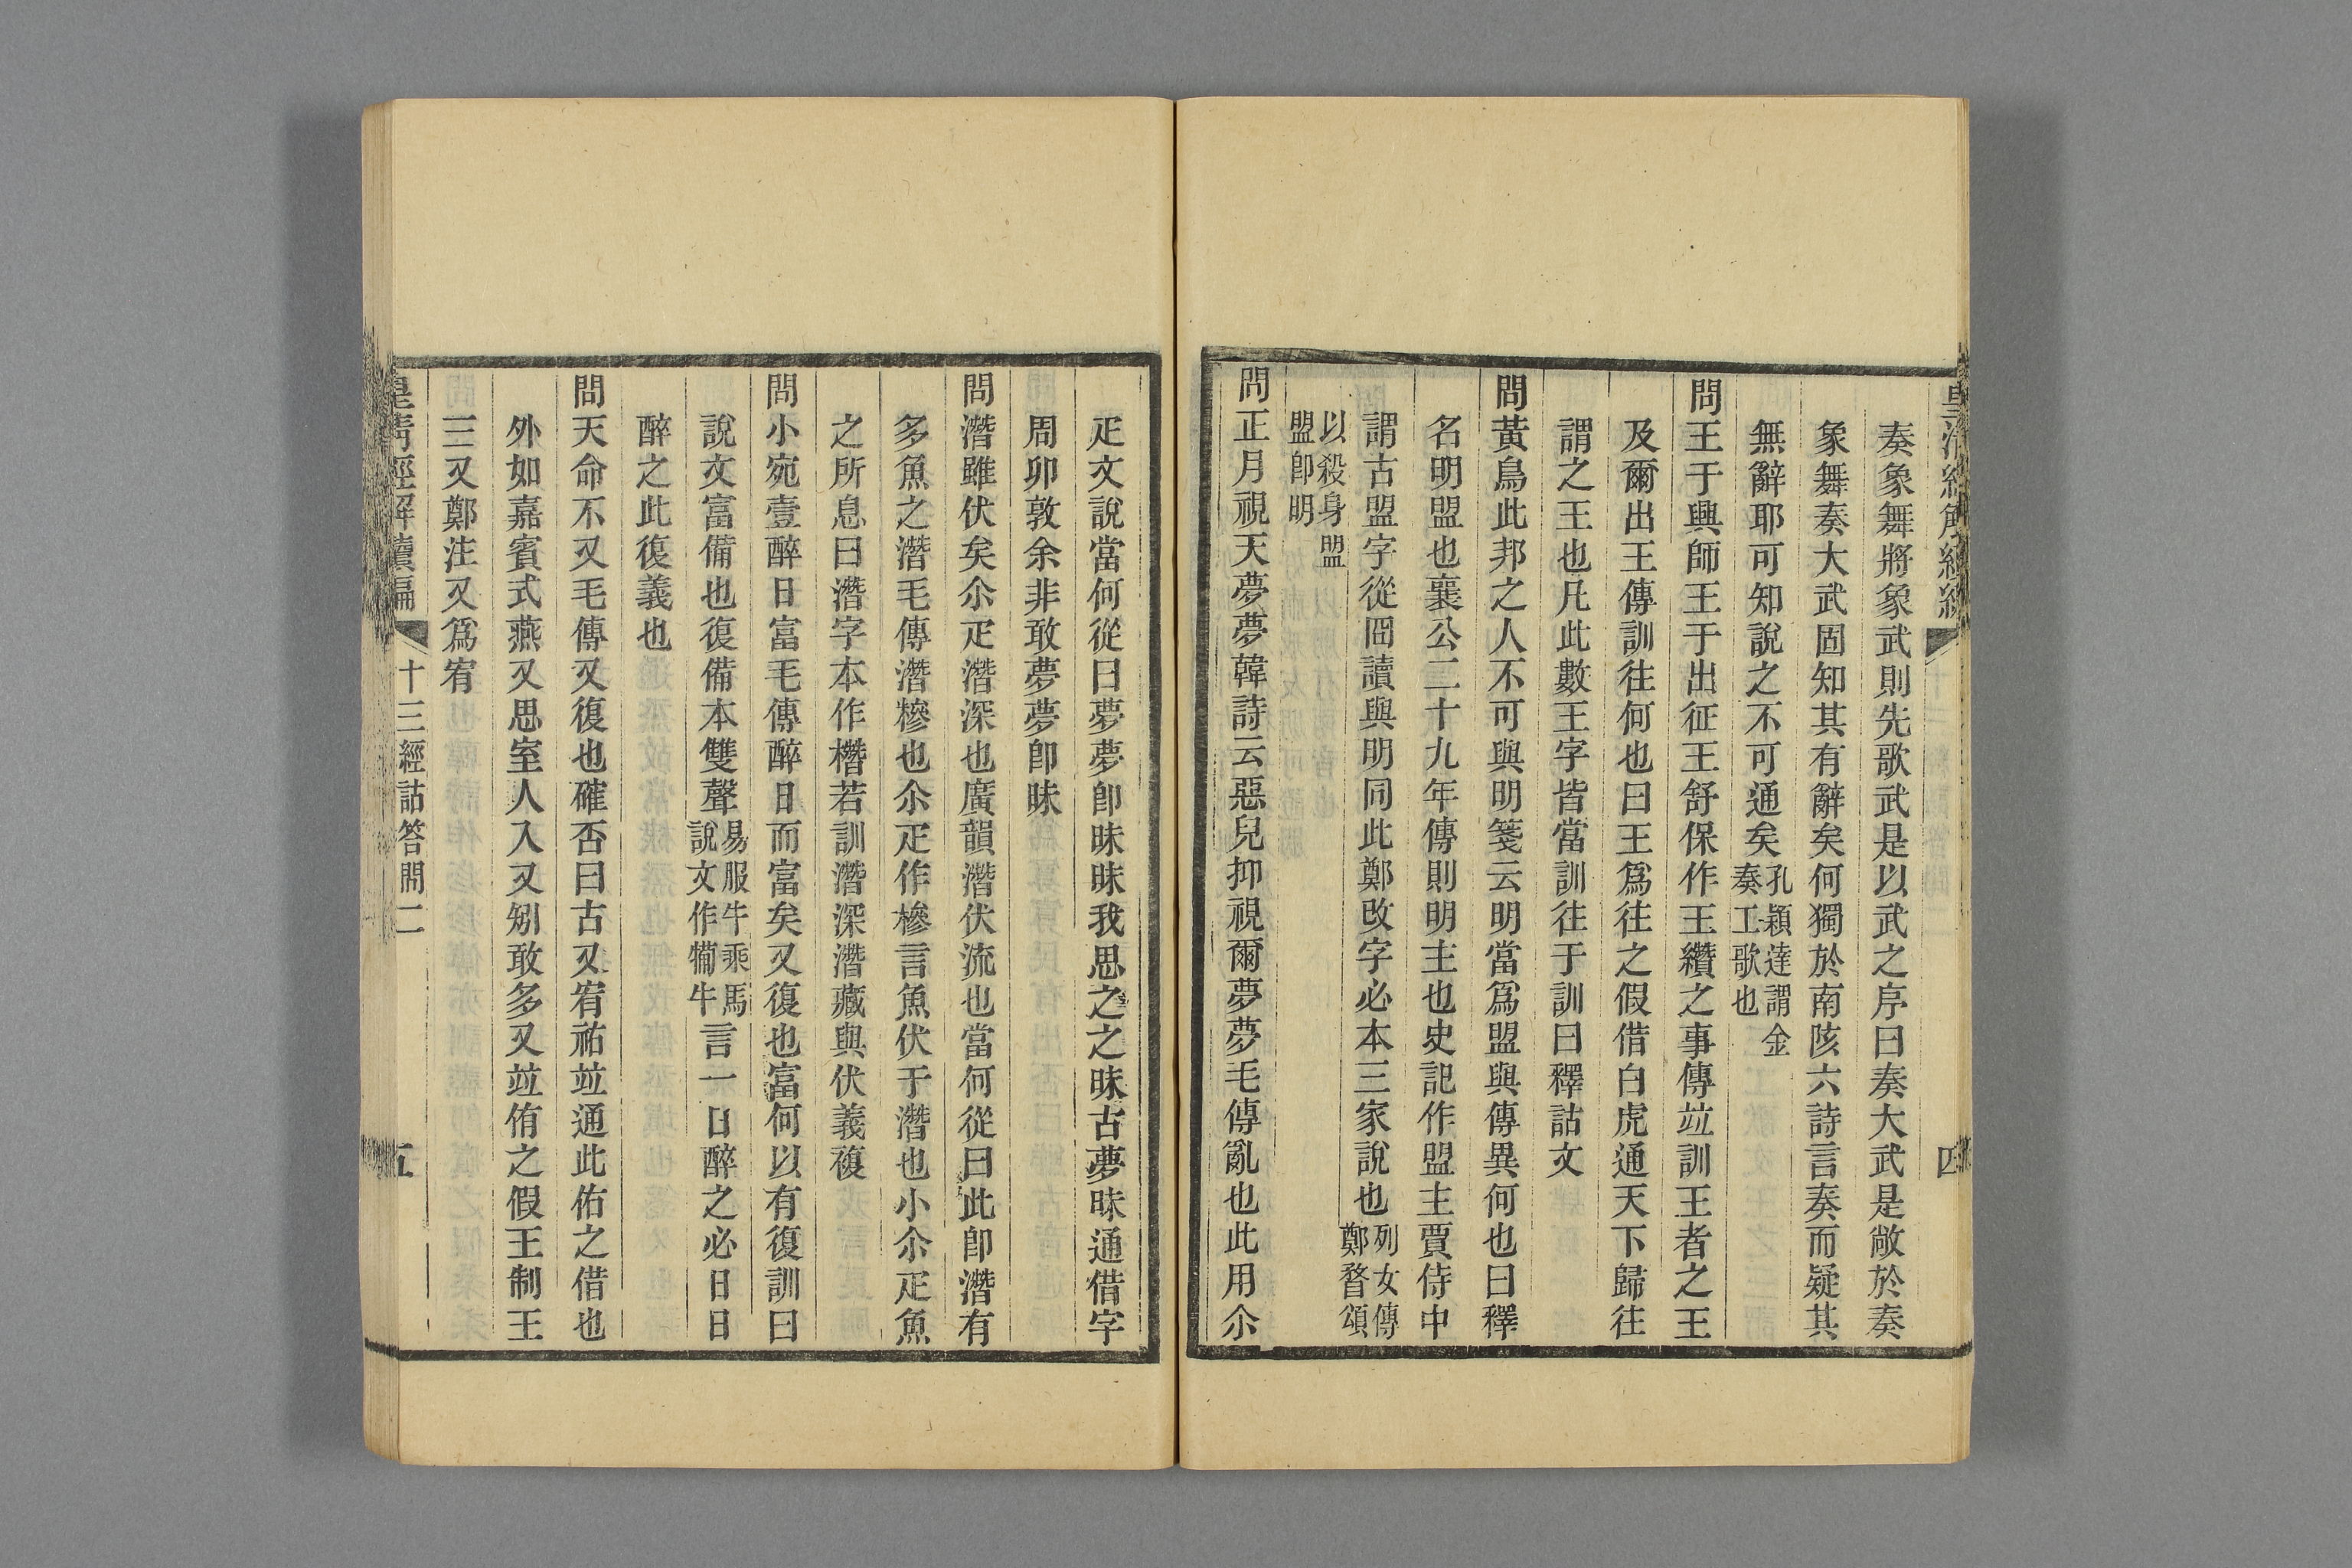 奏象舞將象武則先歌武是以武之序曰奏大武是敞於奏
象舞奏大武固知其有辭矣何獨於南陔六詩言奏而疑其
無辭耶可知說之不可通矣孔穎達謂金奏工歌也
問王于興師王于出征王舒保作王纘之事傳竝訓王者之王
及爾出王傳訓往何也曰王爲往之假借白虎通天下歸往
謂之王也凡此數王字皆當訓往于訓曰釋詁文
問黃鳥此邦之人不可與明箋云明當爲盟與傳異何也曰釋
名明盟也襄公二十九年傳則明主也史記作盟主賈侍中
謂古盟字從囧讀與明同此鄭改字必本三家說也列女傳鄭瞀頌
以殺身盟盟卽明
問正月視天夢夢韓詩云惡皃抑視爾夢夢毛傳亂也此用尒
疋文說當何從曰夢夢卽昧昧我思之之昧古夢昧通借字
周卯敦余非敢夢夢卽昧
問潛雖伏矣尒疋潛深也廣韻潛伏流也當何從曰此卽潛有
多魚之潛毛傳潛糝也尒疋作椮言魚伏于潛也小尒疋魚
之所息曰潛字本作橬若訓潛深潛藏與伏義複
問小宛壹醉日富毛傳醉日而富矣又復也富何以有復訓曰
說文富備也復備本雙聲易服牛乘馬說文作犕牛言一日醉之必日日
醉之此復義也
問天命不又毛傳又復也確否曰古又宥祐竝通此佑之借也
外如嘉賓式燕又思室人入又矧敢多又竝侑之假王制王
三又鄭注又爲宥
皇清經解續編 十三經詁答問二 五